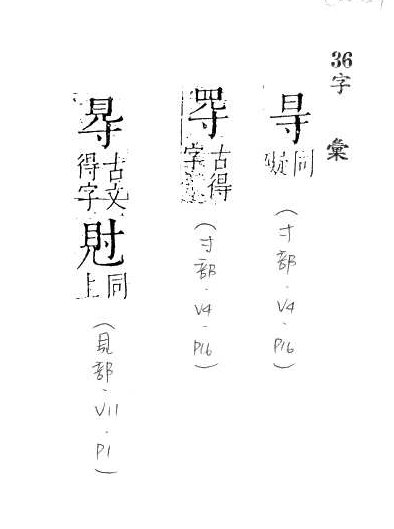 36字彙
㝵
同礙
(寸部.V4.P16)
古得字
(寸部.V4.P16)
䙷
古文得字
同上
(見部.V11.P1)